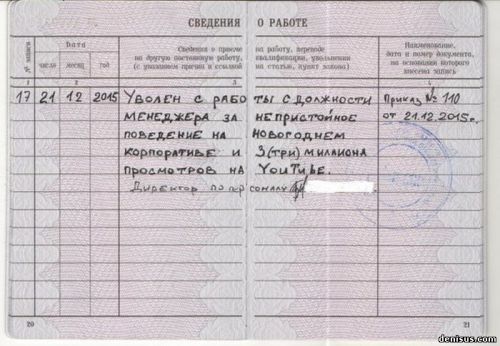 СВЕДЕНИЯ О РАБОТЕ
№ записи
Дата
число месяц год
Сведения о приеме на работу, переводе
на другую постоянную работу, квалификации, увольнении
(с указанием причин и ссылкой на статью, пункт закона)
Наименование,
дата и номер документа,
на основании которого
внесена запись
1 2 3 4
17 21 12 2015 УВОЛЕН С РАБОТЫ С ДОЛЖНОСТИ Приказ № 110
МЕНЕДЖЕРА ЗА НЕПРИСТОЙНОЕ от 21.12.2015г.
ПОВЕДЕНИЕ НА НОВОГОДНЕМ
КОРПОРАТИВЕ И 3(ТРИ) МИЛИОНА
ПРОСМОТРОВ НА YOUTUBE.
Директор по персоналу
20 21
denisus.com